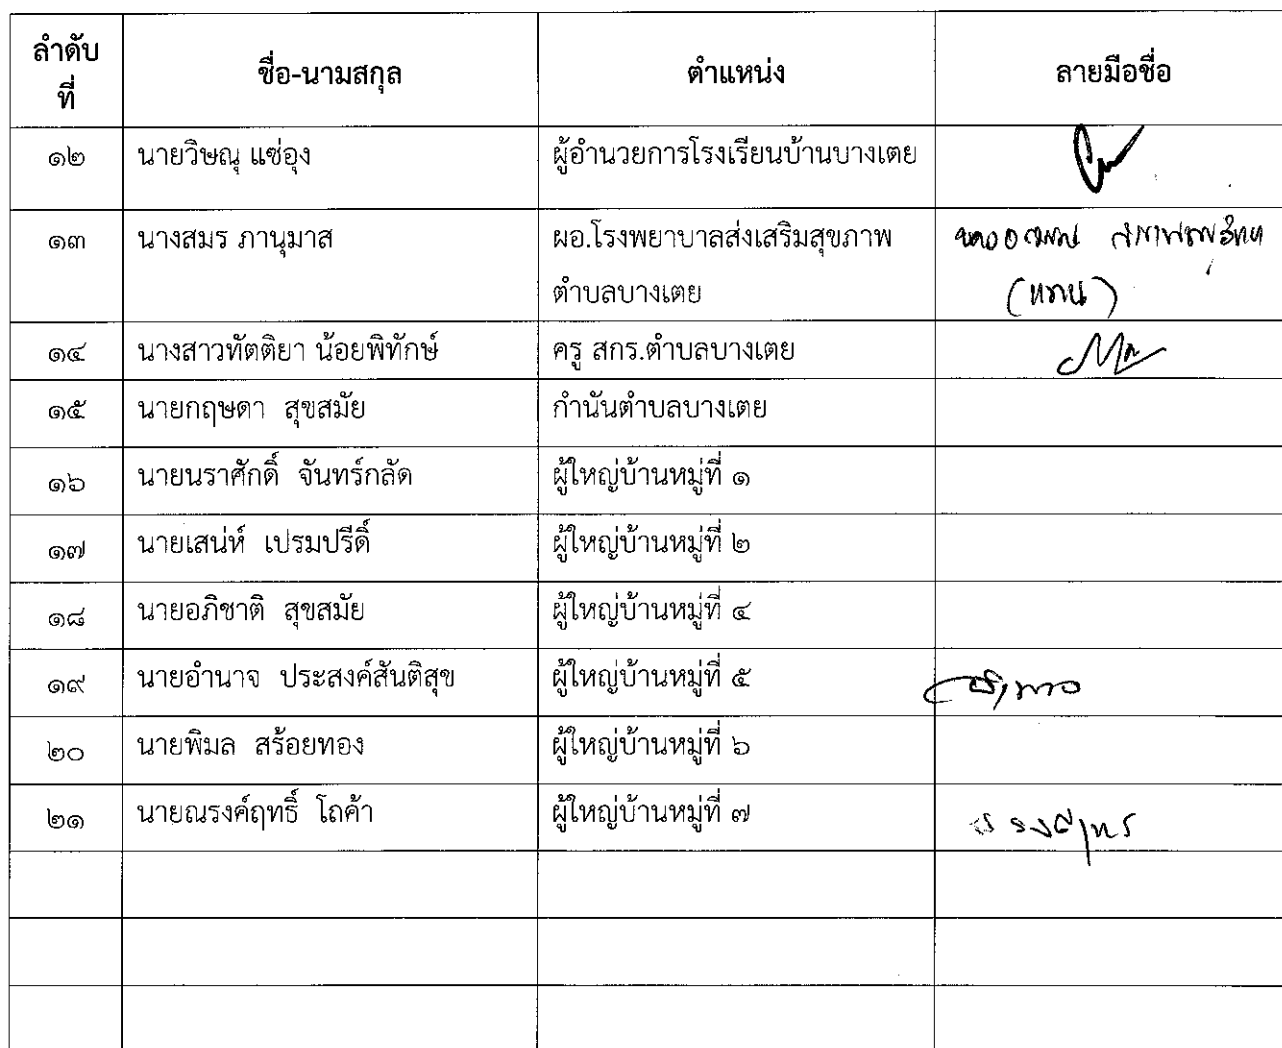 ลำดับ
ที่
ชื่อ-นามสกุล
ตำแหน่ง
ลายมือชื่อ
๑๒ นายวิษณุ แซ่อุง ผู้อำนวยการโรงเรียนบ้านบางเตย
๑๓ นางสมร ภานุมาส ผอ.โรงพยาบาลส่งเสริมสุขภาพ
ตำบลบางเตย (แทน)
๑๔ นางสาวทัตติยา น้อยพิทักษ์ ครู สกร.ตำบลบางเตย
๑๕ นายกฤษดา สุขสมัย กำนันตำบลบางเตย
๑๖ นายนราศักดิ์ จันทร์กลัด ผู้ใหญ่บ้านหมู่ที่ ๑
๑๗ นายเสน่ห์ เปรมปรีดิ์ ผู้ใหญ่บ้านหมู่ที่ ๒
๑๘ นายอภิชาติ สุขสมัย ผู้ใหญ่บ้านหมู่ที่ ๔
๑๙ นายอำนาจ ประสงค์สันติสุข ผู้ใหญ่บ้านหมู่ที่ ๕
๒๐ นายพิมล สร้อยทอง ผู้ใหญ่บ้านหมู่ที่ ๖
๒๑ นายณรงค์ฤทธิ์ โถค้า ผู้ใหญ่บ้านหมู่ที่ ๗